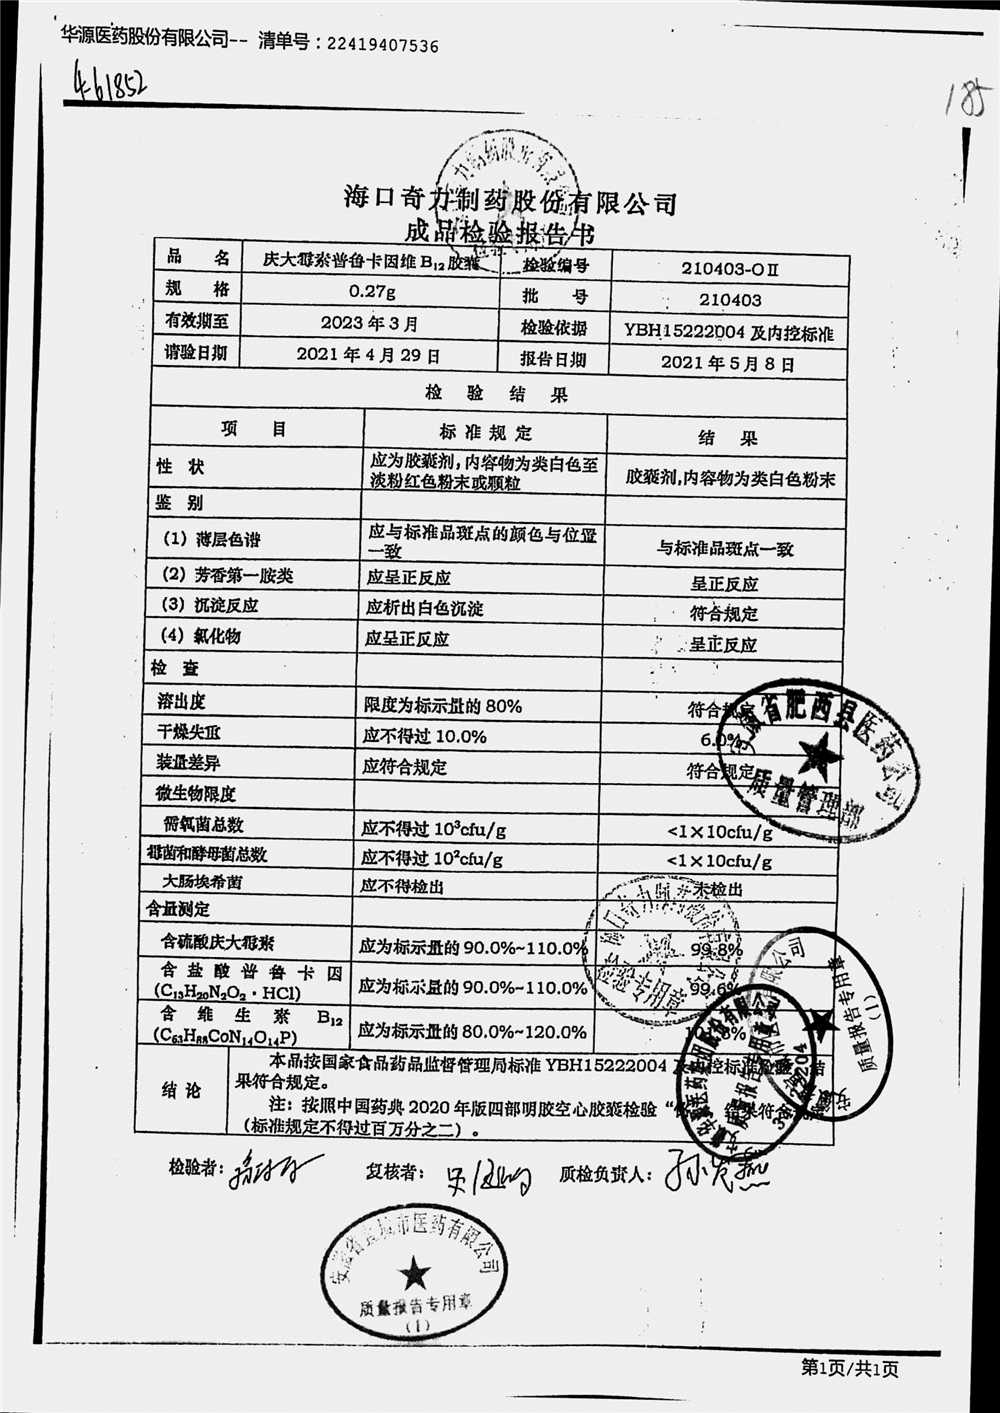 华源医药股份有限公司-- 清单号：22419407536
461852
185
海口奇力制药股份有限公司
成品检验报告书
品 名 庆大霉素普鲁卡因维B₁₂胶囊 检验编号 210403-OⅡ
规 格 0.27g 批 号 210403
有效期至 2023年3月 检验依据 YBH15222004及内控标准
请验日期 2021年4月29日 报告日期 2021年5月8日
检 验 结 果
项 目 标准规定 结 果
性 状 应为胶囊剂,内容物为类白色至
淡粉红色粉末或颗粒 胶囊剂,内容物为类白色粉末
鉴 别
(1) 薄层色谱 应与标准品斑点的颜色与位置
一致 与标准品斑点一致
(2) 芳香第一胺类 应呈正反应 呈正反应
(3) 沉淀反应 应析出白色沉淀 符合规定
(4) 氯化物 应呈正反应 呈正反应
检 查
溶出度 限度为标示量的80% 符合规定
干燥失重 应不得过10.0% 6.0%
装量差异 应符合规定 符合规定
微生物限度
需氧菌总数 应不得过10³cfu/g <1×10cfu/g
霉菌和酵母菌总数 应不得过10²cfu/g <1×10cfu/g
大肠埃希菌 应不得检出 未检出
含量测定
含硫酸庆大霉素 应为标示量的90.0%~110.0% 99.8%
含盐酸普鲁卡因
(C₁₃H₂₀N₂O₂·HCl) 应为标示量的90.0%~110.0% 99.6%
含维生素B₁₂
(C₆₃H₈₈CoN₁₄O₁₄P) 应为标示量的80.0%~120.0%
结 论 本品按国家食品药品监督管理局标准YBH15222004及内控标准检验，结
果符合规定。
注：按照中国药典2020年版四部明胶空心胶囊检验 结果符合规定
(标准规定不得过百万分之二)。
检验者： 复核者： 质检负责人：
安徽省肥西县医药公司
质量管理部
质量报告专用章
(1)
医药有限公司
质量报告专用章
(1)
第1页/共1页